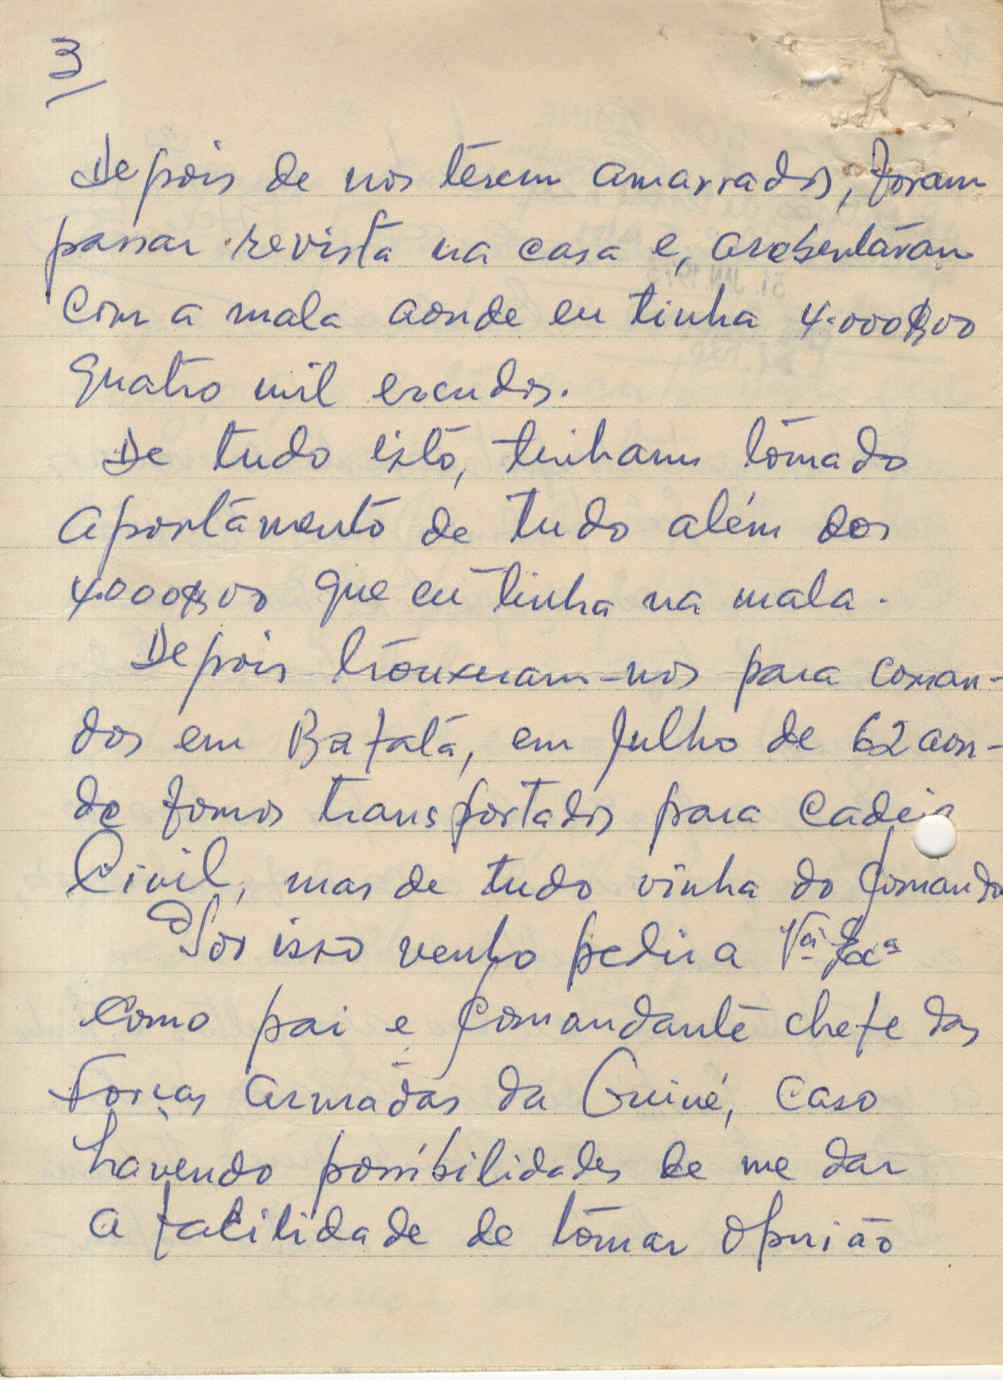 3/
Depois de nos terem amarrados, foram
passar revista na casa e, aresentaram
com a mala aonde eu tinha 4.000$00
quatro mil escudos.
De tudo isto, tinham tomado
apontamento de tudo além dos
4.000$00 que eu tinha na mala.
Depois trouxeram-nos para coman-
dos em Bafatá, em Julho de 62 aon-
de fomos transportados para cadeia
Civil, mas de tudo vinha do Comando
Por isso venho pedir a Vª Exª
como pai e Comandante chefe das
Forças armadas da Guiné, caso
havendo possibilidades de me dar
a facilidade de tomar opinião